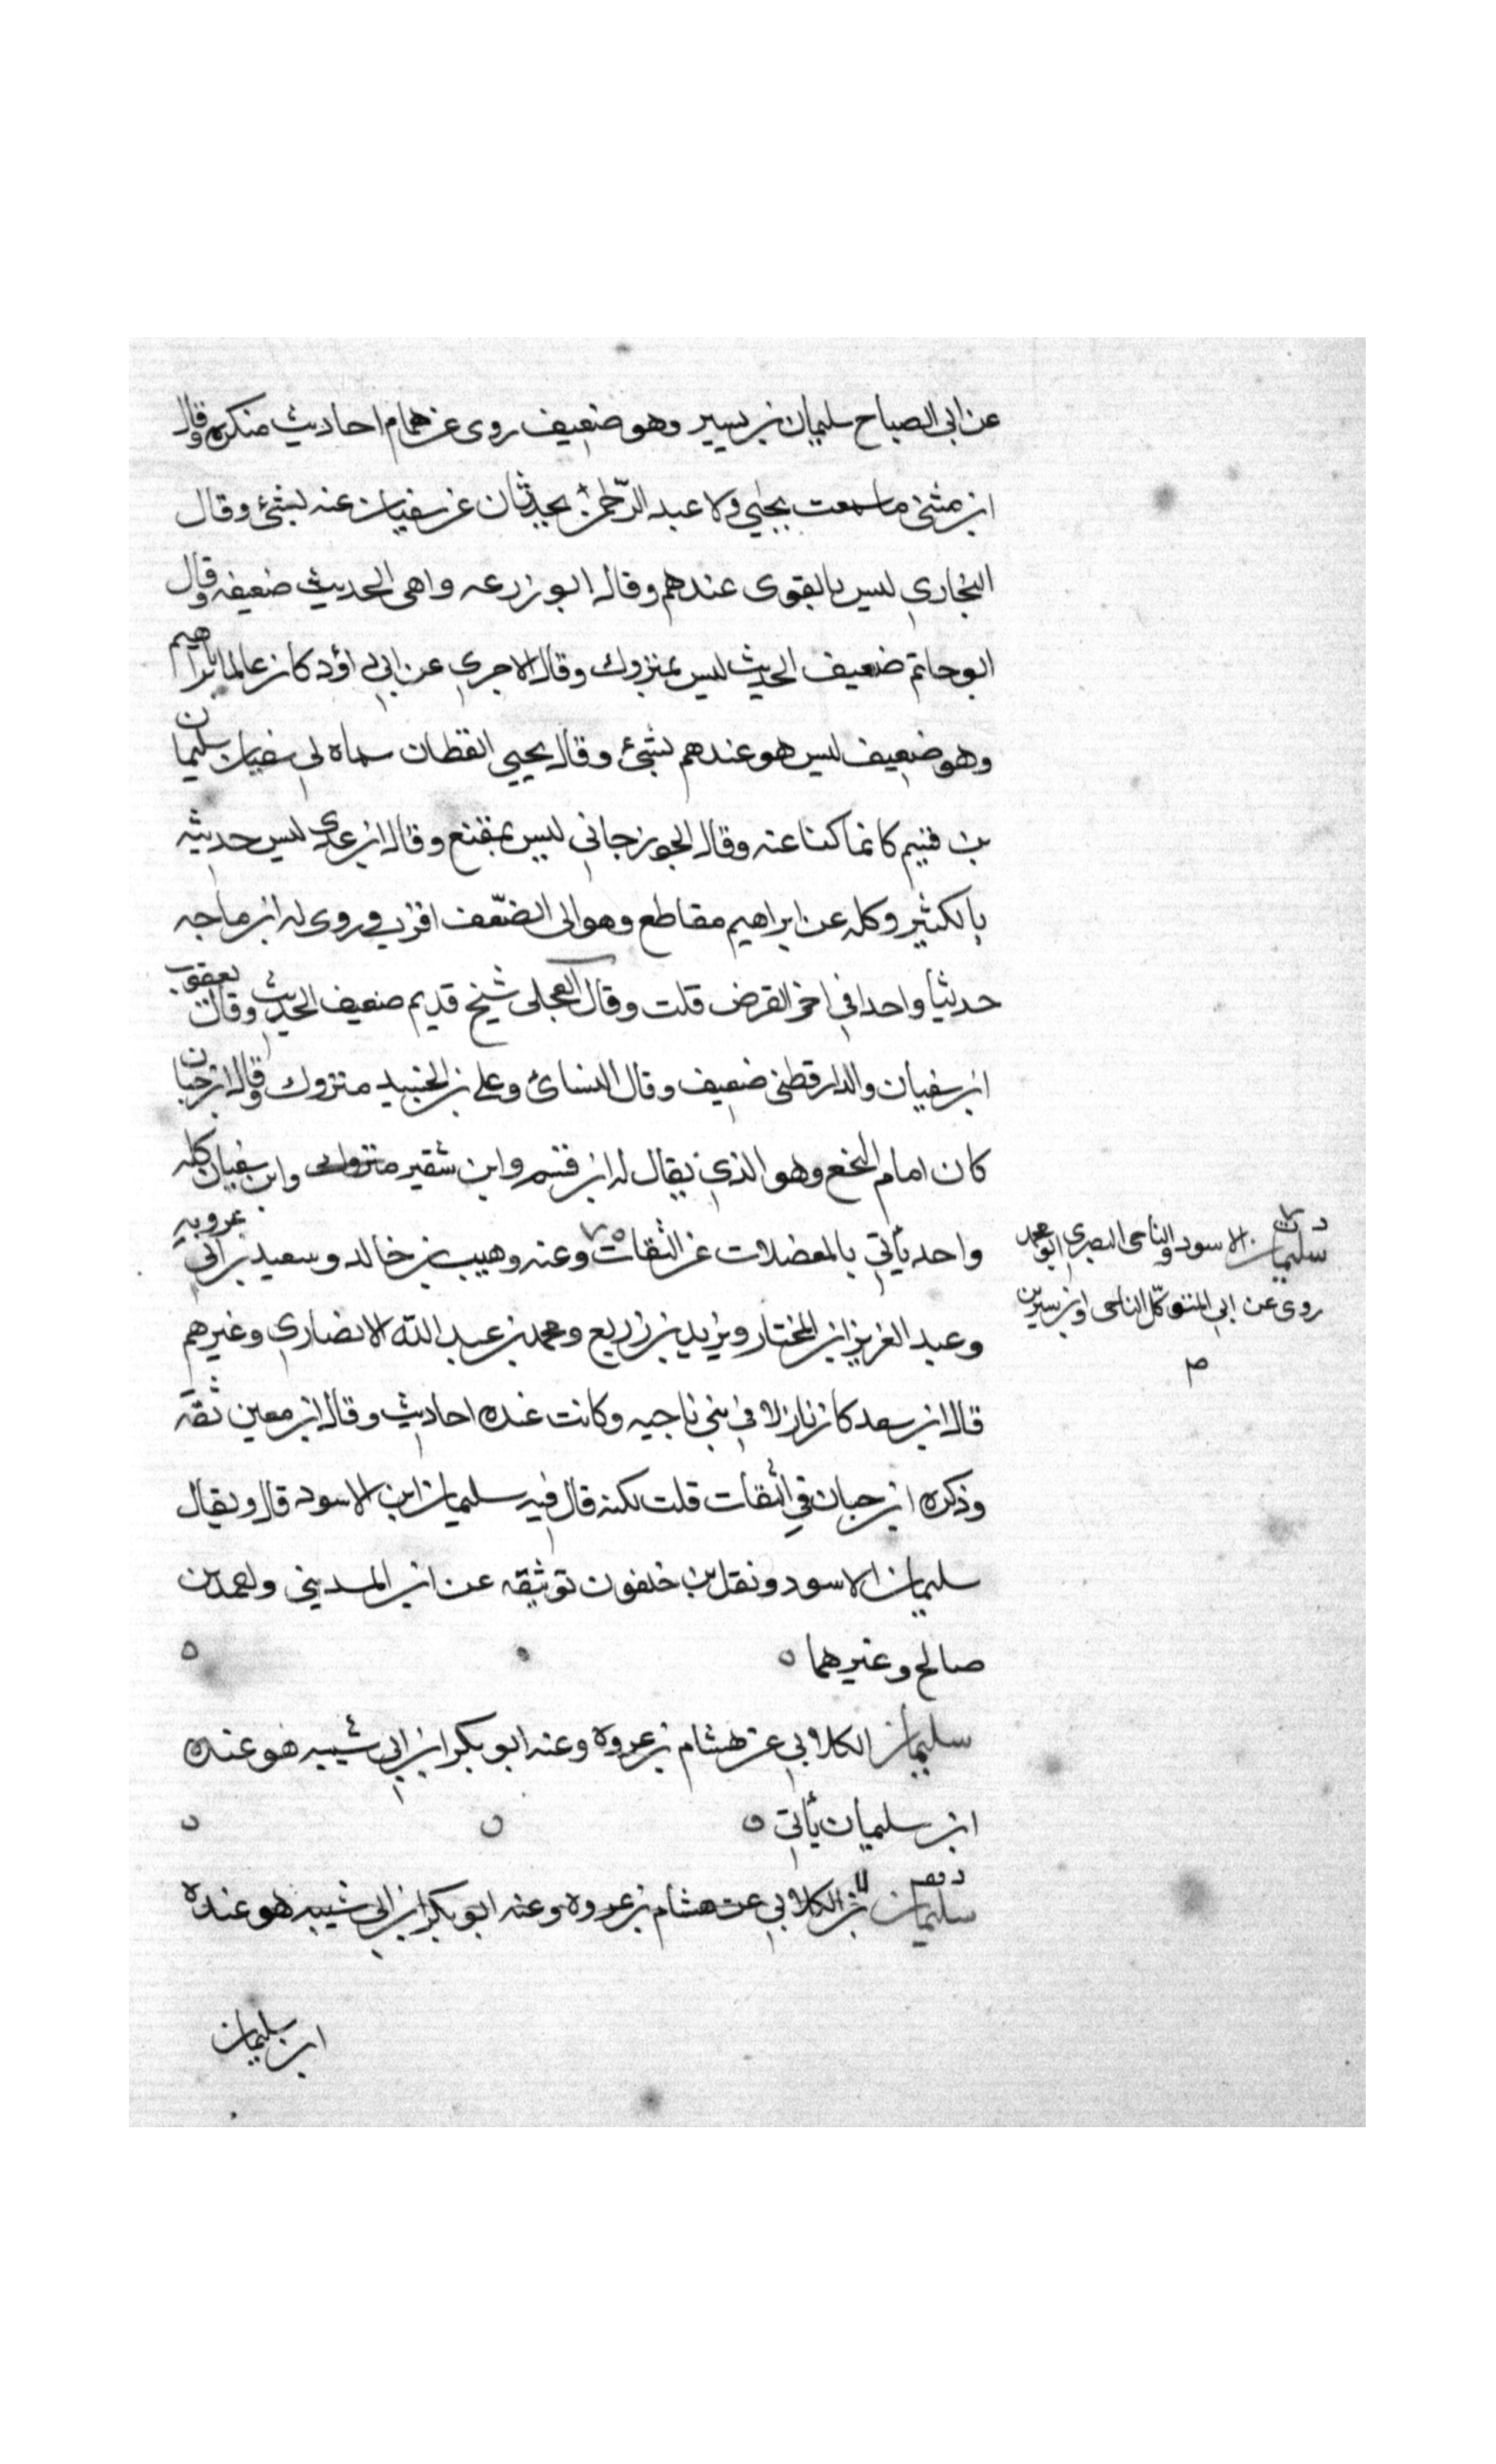 عن ابي الصباح سليمان بن يسير وهو ضعيف روى عن همام احاديث منكره وقال
ابن مثنى ما سمعت يحيي ولا عبد الرحمن يحدثان عن سفيان عنه بشئ وقال
البخاري ليس بالقوى عندهم وقال ابو زرعه واهى الحديث ضعيفه وقال
ابو حاتم ضعيف الحديث ليس بمتروك وقال الاجري عن ابي داؤد كان عالما بابراهيم
وهو ضعيف ليس هو عندهم بشئ وقال يحيي القطان سماه لي سفيان سليمان
بن قتيم كانما كنا عنه وقال الجوزجاني ليس بمقنع وقال ابن عدي ليس حديثه
بالكثير وكله عن ابراهيم مقاطع وهو الى الضعف اقرب وروى له ابن ماجه
حديثا واحدا في اخر القرض قلت وقال العجلى شيخ قديم ضعيف الحديث وقال يعقوب
ابن سفيان والدارقطنى ضعيف وقال النسائ وعلى بن الجنيد متروك وقال ابن حبان
كان امام النخع وهو الذي يقال له ابن قتيم وابن شقير وابن سفيان كله
واحد يأتي بالمعضلات عن الثقات وعنه وهيب بن خالد وسعيد بن ابي عروبه
وعبد العزيز ابن المختار ويزيد بن زريع ومحمد بن عبد الله الانصاري وغيرهم
قال ابن سعد كان نازلا في بني ناجيه وكانت عنده احاديث وقال ابن معين ثقة
وذكره ابن حبان في الثقات قلت لكنه قال فيه سليمان ابن الاسود قال ويقال
سليمان الاسود ونقل بن خلفون توثيقه عن ابن المديني واحمد بن
صالح وغيرهما
سليمان الكلابي عن هشام بن عروة وعنه ابو بكر ابن ابي شيبه هو عنده
ابن سليمان يأتي
سليمان الكلابي عن هشام بن عروه وعنه ابو بكر ابن ابي شيبه هو عنده
ابن سليمان
د ت
سليمان الاسود الناجى البصري ابو محمد
روى عن ابي المتوكل الناجى وابن سيرين